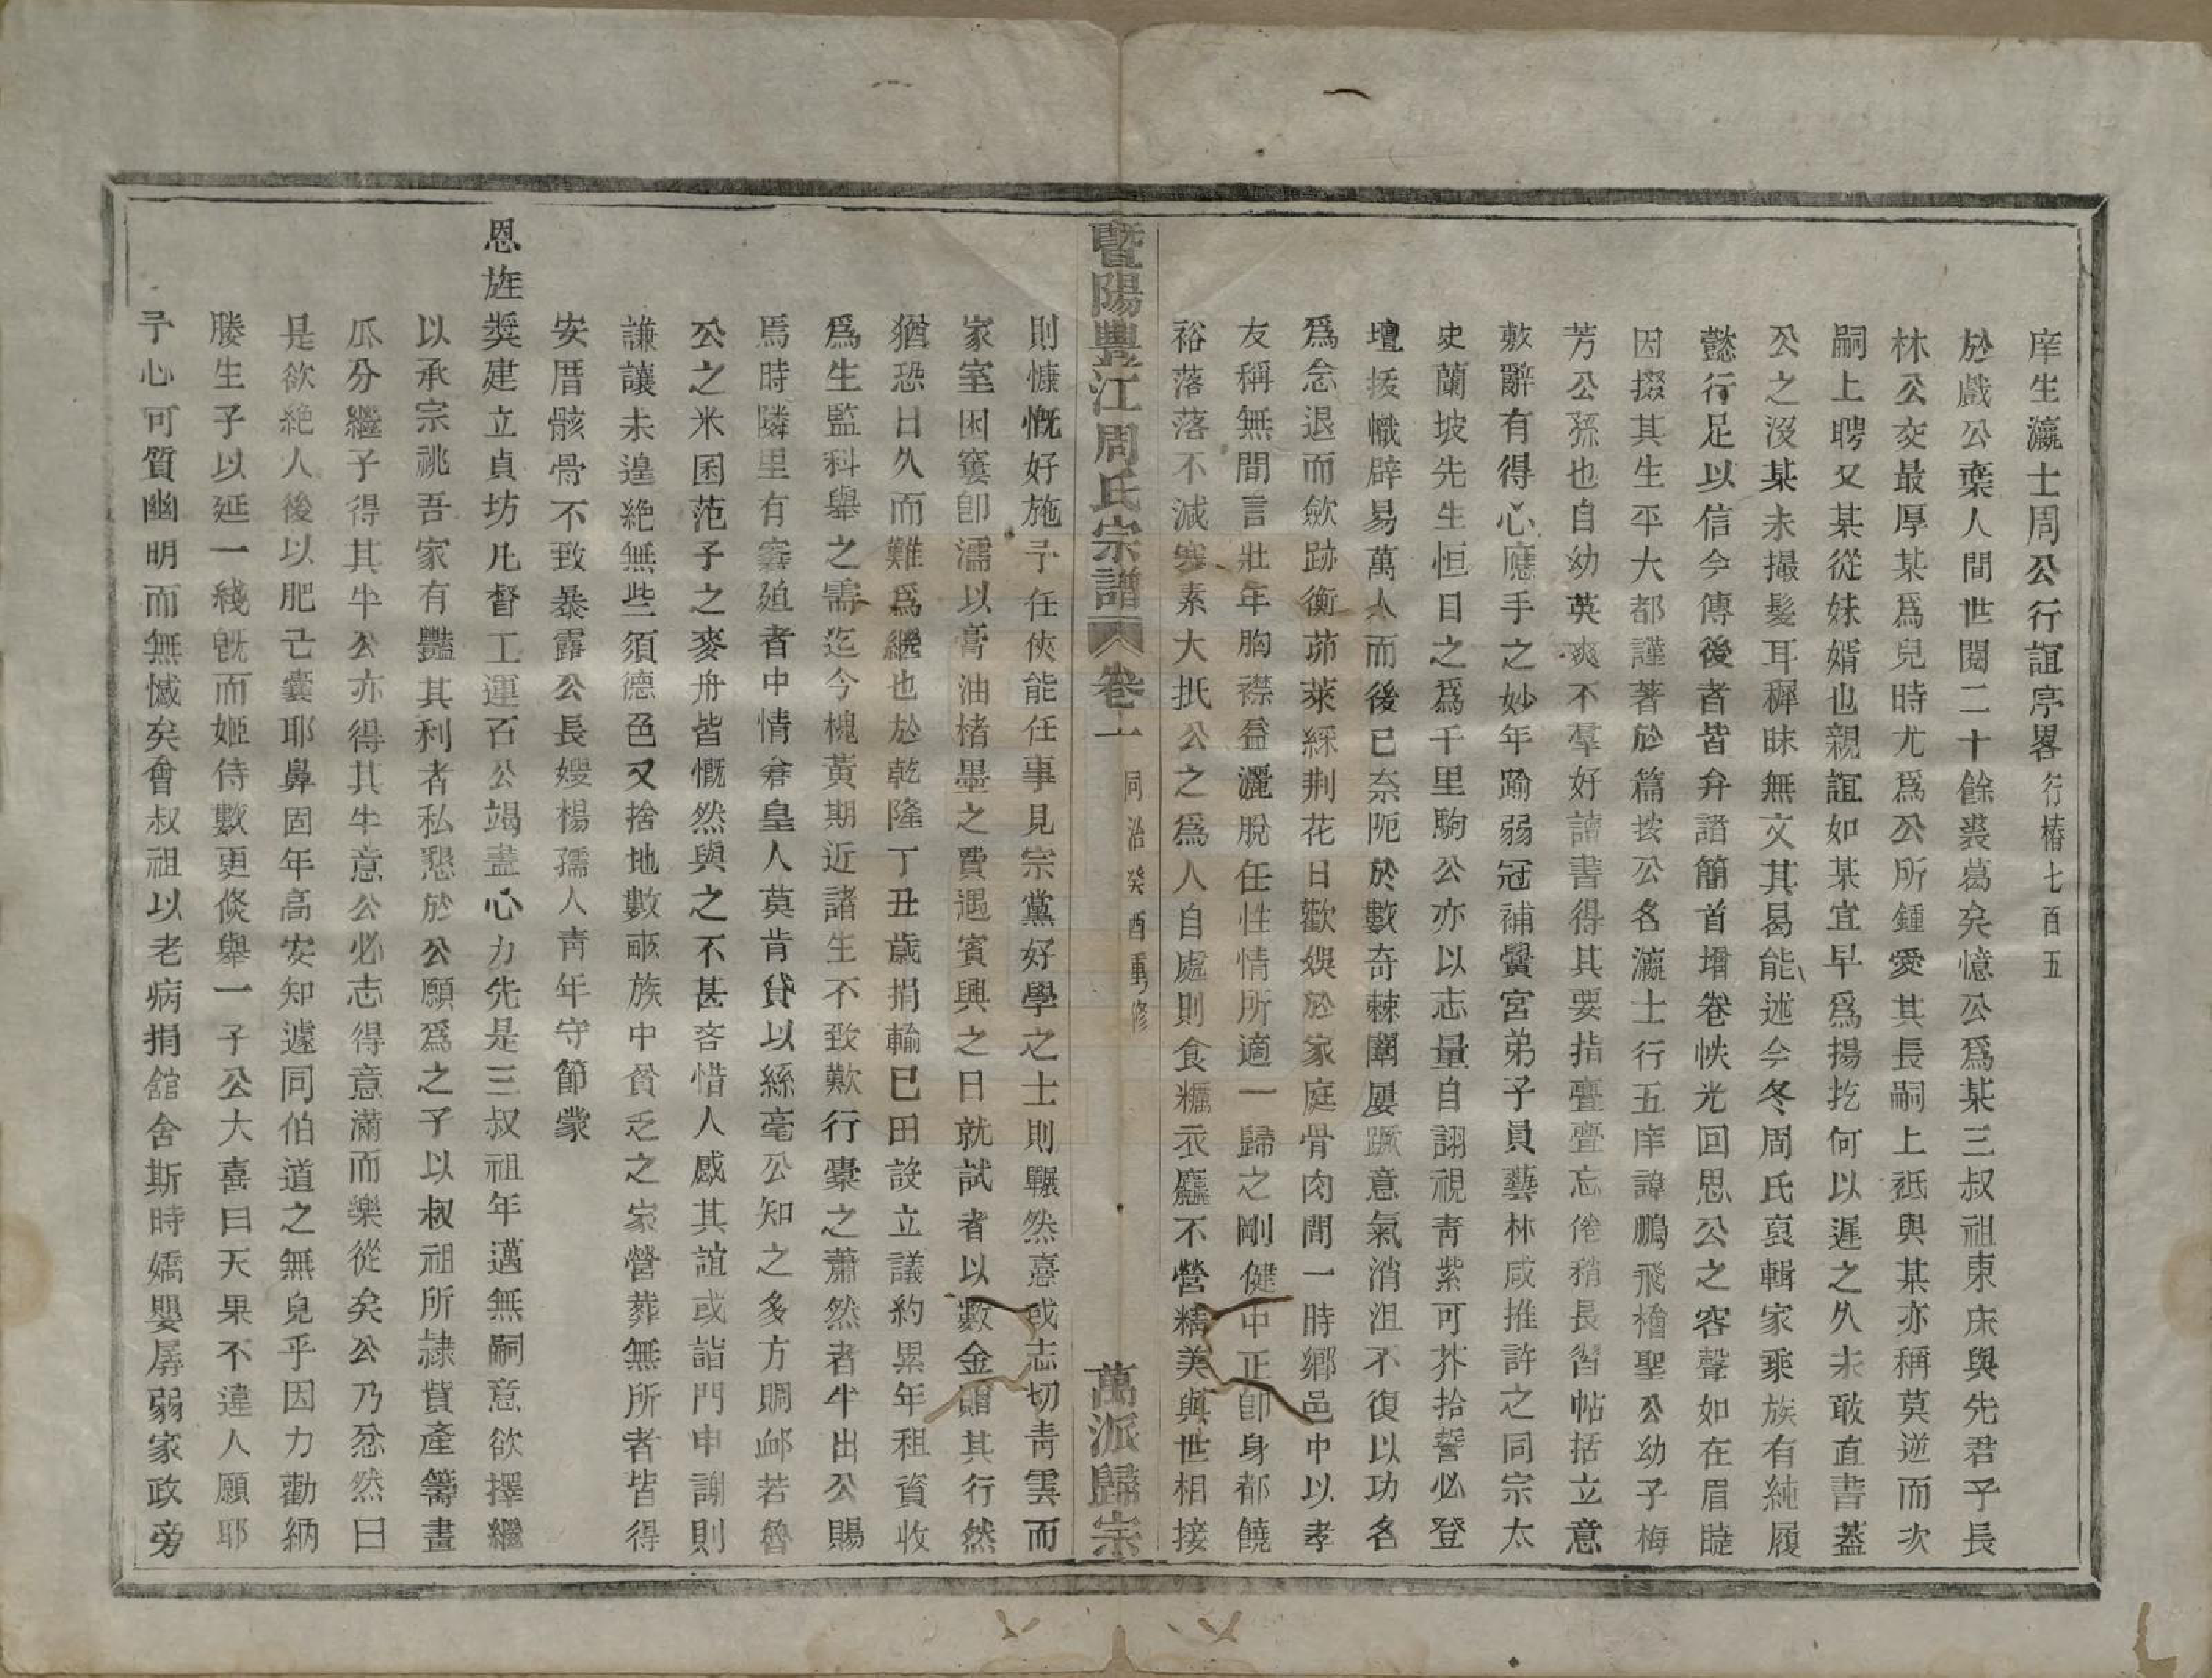 庠生瀛士周公行誼序畧行椿七百五
於戲公棄人間世閱二十餘裘葛矣憶公爲某三叔祖東床與先君子長
林公交最厚某爲兒時尤爲公所鍾愛其長嗣上祇與某亦稱莫逆而次
嗣上聘又某從妹婿也親誼如某宜早爲揚扢何以遲之久未敢直書蓋
公之沒某未撮髮耳穉昧無文其曷能述今冬周氏裒輯家乘族有純履
懿行足以信今傳後者皆弁諸簡首增卷帙光回思公之容聲如在眉睫
因掇其生平大都謹著於篇按公名瀛士行五庠諱鵬飛檜聖公幼子梅
芳公孫也自幼英爽不羣好讀書得其要指亹亹忘倦稍長習帖括立意
敷辭有得心應手之妙年踰弱冠補黌宮弟子員藝林咸推許之同宗太
史蘭坡先生恒目之爲千里駒公亦以志量自詡視青紫可芥拾誓必登
壇拔幟辟易萬人而後已奈阨於數奇棘闈屢蹶意氣消沮不復以功名
爲念退而歛跡衡茆萊綵荆花日歡娛於家庭骨肉間一時鄉邑中以孝
友稱無間言壯年胸襟益灑脫任性情所適一歸之剛健中正卽身都饒
裕落落不減寒素大抵公之爲人自處則食糲衣麤不營精美與世相接
暨陽豐江周氏宗譜 卷一 同治癸酉重修 萬派歸宗
則慷慨好施予任俠能任事見宗黨好學之士則囅然憙或志切靑雲而
家室困窶卽濡以膏油楮墨之費遇賓興之日就試者以數金贈其行然
猶恐日久而難爲繼也於乾隆丁丑歲捐輸已田設立議約累年租資收
爲生監科舉之需迄今槐黃期近諸生不致歎行橐之蕭然者半出公賜
焉時隣里有窘廹者中情倉皇人莫肯貸以絲毫公知之多方賙卹若魯
公之米困范子之麥舟皆慨然與之不甚吝惜人感其誼或詣門申謝則
謙讓未遑絶無些須德色又捨地數畝族中貧乏之家營葬無所者皆得
安厝骸骨不致暴露公長嫂楊孺人靑年守節蒙
恩旌獎建立貞坊凡督工運石公竭盡心力先是三叔祖年邁無嗣意欲擇繼
以承宗祧吾家有豔其利者私懇於公願爲之子以叔祖所隷貲產籌畫
瓜分繼子得其半公亦得其半意公必志得意滿而樂從矣公乃忿然曰
是欲絶人後以肥己囊耶鼻固年高安知遽同伯道之無兒乎因力勸納
媵生子以延一綫旣而姬侍數更倐舉一子公大喜曰天果不違人願耶
予心可質幽明而無憾矣會叔祖以老病捐舘舍斯時嬌嬰孱弱家政旁